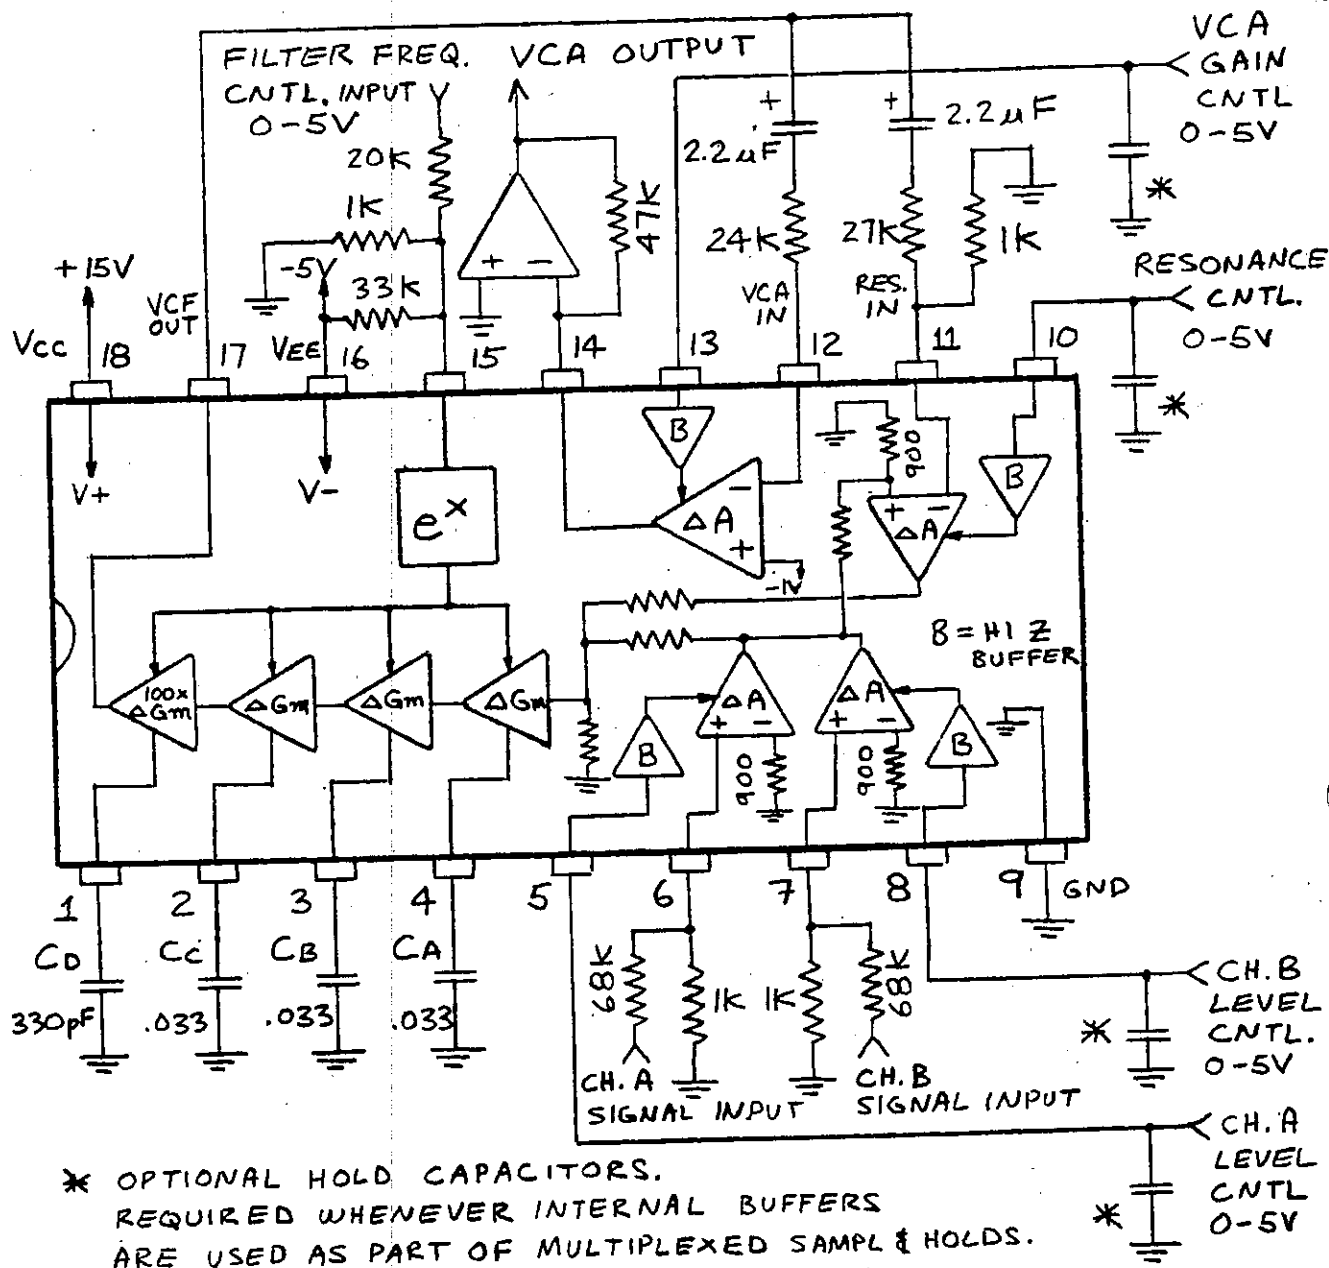 FILTER FREQ.
CNTL. INPUT
0-5V
VCA OUTPUT
VCA
GAIN
CNTL
0-5V
+
2.2µF
+
2.2µF
*
20K
1K
47K
24K
27K
1K
+ -
+15V
-5V
33K
VCF
OUT
VCA
IN
RES.
IN
RESONANCE
CNTL.
0-5V
*
VCC
18
17
VEE
16
15
14
13
12
11
10
V+
V-
e^x
B
ΔA
-
+
-1V
900
+ -
ΔA
B
B = HI Z
BUFFER
100x
ΔGm
ΔGm
ΔGm
ΔGm
B
ΔA
+ -
900
ΔA
+ -
900
B
1
2
3
4
5
6
7
8
9
GND
CD
330pF
CC
.033
CB
.033
CA
.033
68K
1K
1K
68K
CH. A
SIGNAL INPUT
CH. B
SIGNAL INPUT
*
CH. B
LEVEL
CNTL.
0-5V
*
CH. A
LEVEL
CNTL
0-5V
* OPTIONAL HOLD CAPACITORS.
REQUIRED WHENEVER INTERNAL BUFFERS
ARE USED AS PART OF MULTIPLEXED SAMPL & HOLDS.